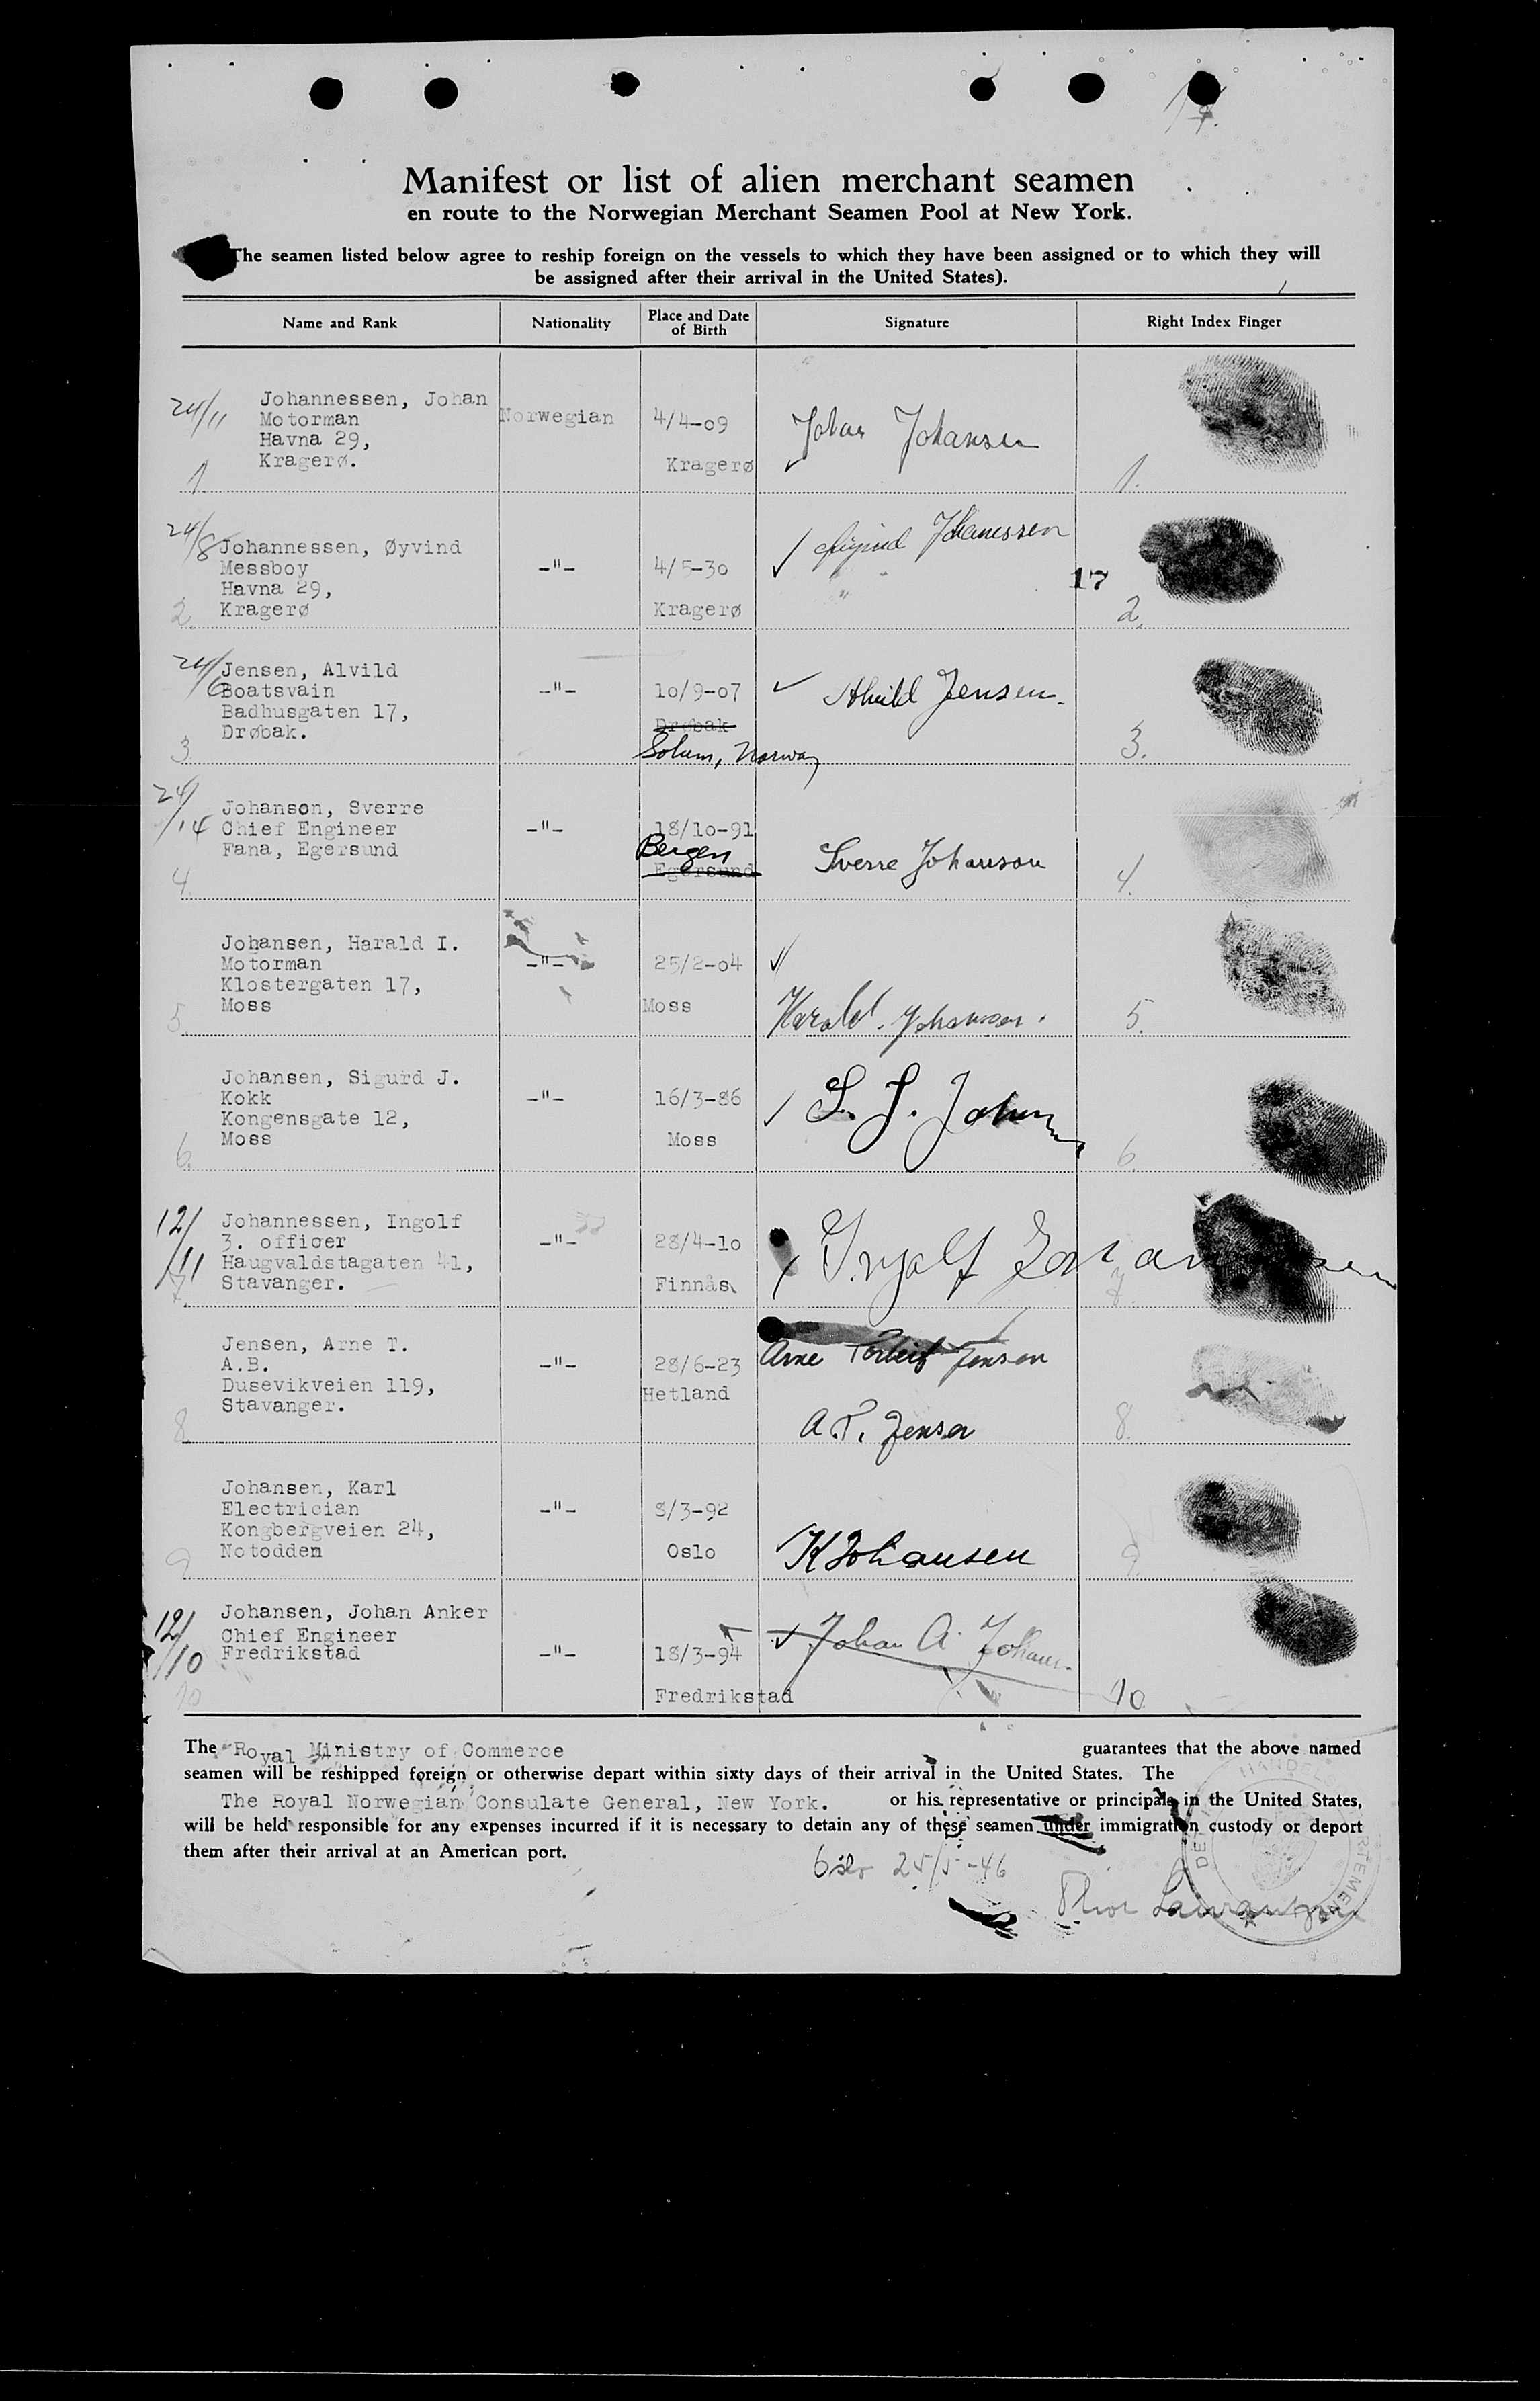 14.
Manifest or list of alien merchant seamen
en route to the Norwegian Merchant Seamen Pool at New York.
The seamen listed below agree to reship foreign on the vessels to which they have been assigned or to which they will
be assigned after their arrival in the United States).
Name and Rank Nationality Place and Date of Birth Signature Right Index Finger
24/11 Johannessen, Johan
Motorman Norwegian 4/4-09
Havna 29, Johan Johansen
Kragerø. Kragerø
1. 1.
24/8 Johannessen, Øyvind Øyvind Johannessen
Messboy -"- 4/5-30
Havna 29, 17
Kragerø Kragerø
2. 2.
24/6 Jensen, Alvild
Boatsvain -"- 10/9-07 Alvild Jensen.
Badhusgaten 17,
Drøbak. Drøbak
3. Solum, Norway 3.
24/14 Johanson, Sverre
Chief Engineer -"- 18/10-91
Fana, Egersund Bergen Sverre Johanson
Egersund
4. 4.
Johansen, Harald I.
Motorman -"- 25/2-04
Klostergaten 17,
Moss Moss Harald. Johansen.
5. 5.
Johansen, Sigurd J.
Kokk -"- 16/3-86 S. J. Johansen
Kongensgate 12,
Moss Moss
6. 6.
12/11 Johannessen, Ingolf
3. officer -"- 28/4-10 Ingolf Johannessen
Haugvaldstagaten 41,
Stavanger. Finnås
7. 7
Jensen, Arne T.
A.B. -"- 28/6-23 Arne Torleif Jensen
Dusevikveien 119, Hetland
Stavanger. A.T. Jensen
8 8.
Johansen, Karl
Electrician -"- 8/3-92
Kongbergveien 24,
Notodden Oslo K Johansen
9 9.
12/10 Johansen, Johan Anker
Chief Engineer Johan A. Johans.
Fredrikstad -"- 18/3-94
10 Fredrikstad 10
The Royal Ministry of Commerce guarantees that the above named
seamen will be reshipped foreign or otherwise depart within sixty days of their arrival in the United States. The
The Royal Norwegian Consulate General, New York. or his representative or principals in the United States,
will be held responsible for any expenses incurred if it is necessary to detain any of these seamen under immigration custody or deport
them after their arrival at an American port.
Oslo 25/5-46
Thor